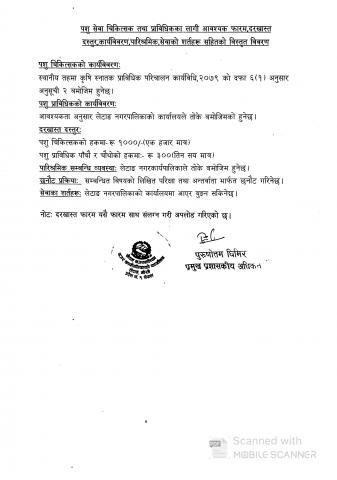 पशु सेवा चिकित्सक तथा प्राविधिकका लागी आवश्यक फारम,दरखास्त
दस्तुर,कार्यविवरण,पारिश्रमिक,सेवाको शर्तहरू सहितको विस्तृत विवरण
पशु चिकित्सकको कार्यविवरण:
स्थानीय तहमा कृषि स्नातक प्राविधिक परिचालन कार्यविधि,२०७९ को दफा ६(१) अनुसार
अनुसूची २ बमोजिम हुनेछ।
पशु प्राविधिकको कार्यविवरण:
आवश्यकता अनुसार लेटाङ नगरपालिकाको कार्यालयले तोके बमोजिमको हुनेछ।
दरखास्त दस्तुर:
पशु चिकित्सकको हकमा-रू १०००/-(एक हजार मात्र)
पशु प्राविधिक पाँचौं र चौथोको हकमा- रू ३००(तिन सय मात्र)
पारिश्रमिक सम्बन्धि व्यवस्था: लेटाङ नगरकार्यपालिकाले तोके बमोजिम हुनेछ।
छनौट प्रक्रिया: सम्बन्धित विषयको लिखित परिक्षा तथा अन्तर्वार्ता मार्फत छनौट गरिनेछ।
सेवाका शर्तहरू: लेटाङ नगरपालिकाको कार्यालयमा आएर बुझ्न सकिनेछ।
नोट: दरखास्त फारम यसै फारम साथ संलग्न गरी अपलोड गरिएको छ।
पुरुषोत्तम घिमिरे
प्रमुख प्रशासकीय अधिकृत
Scanned with
MOBILE SCANNER